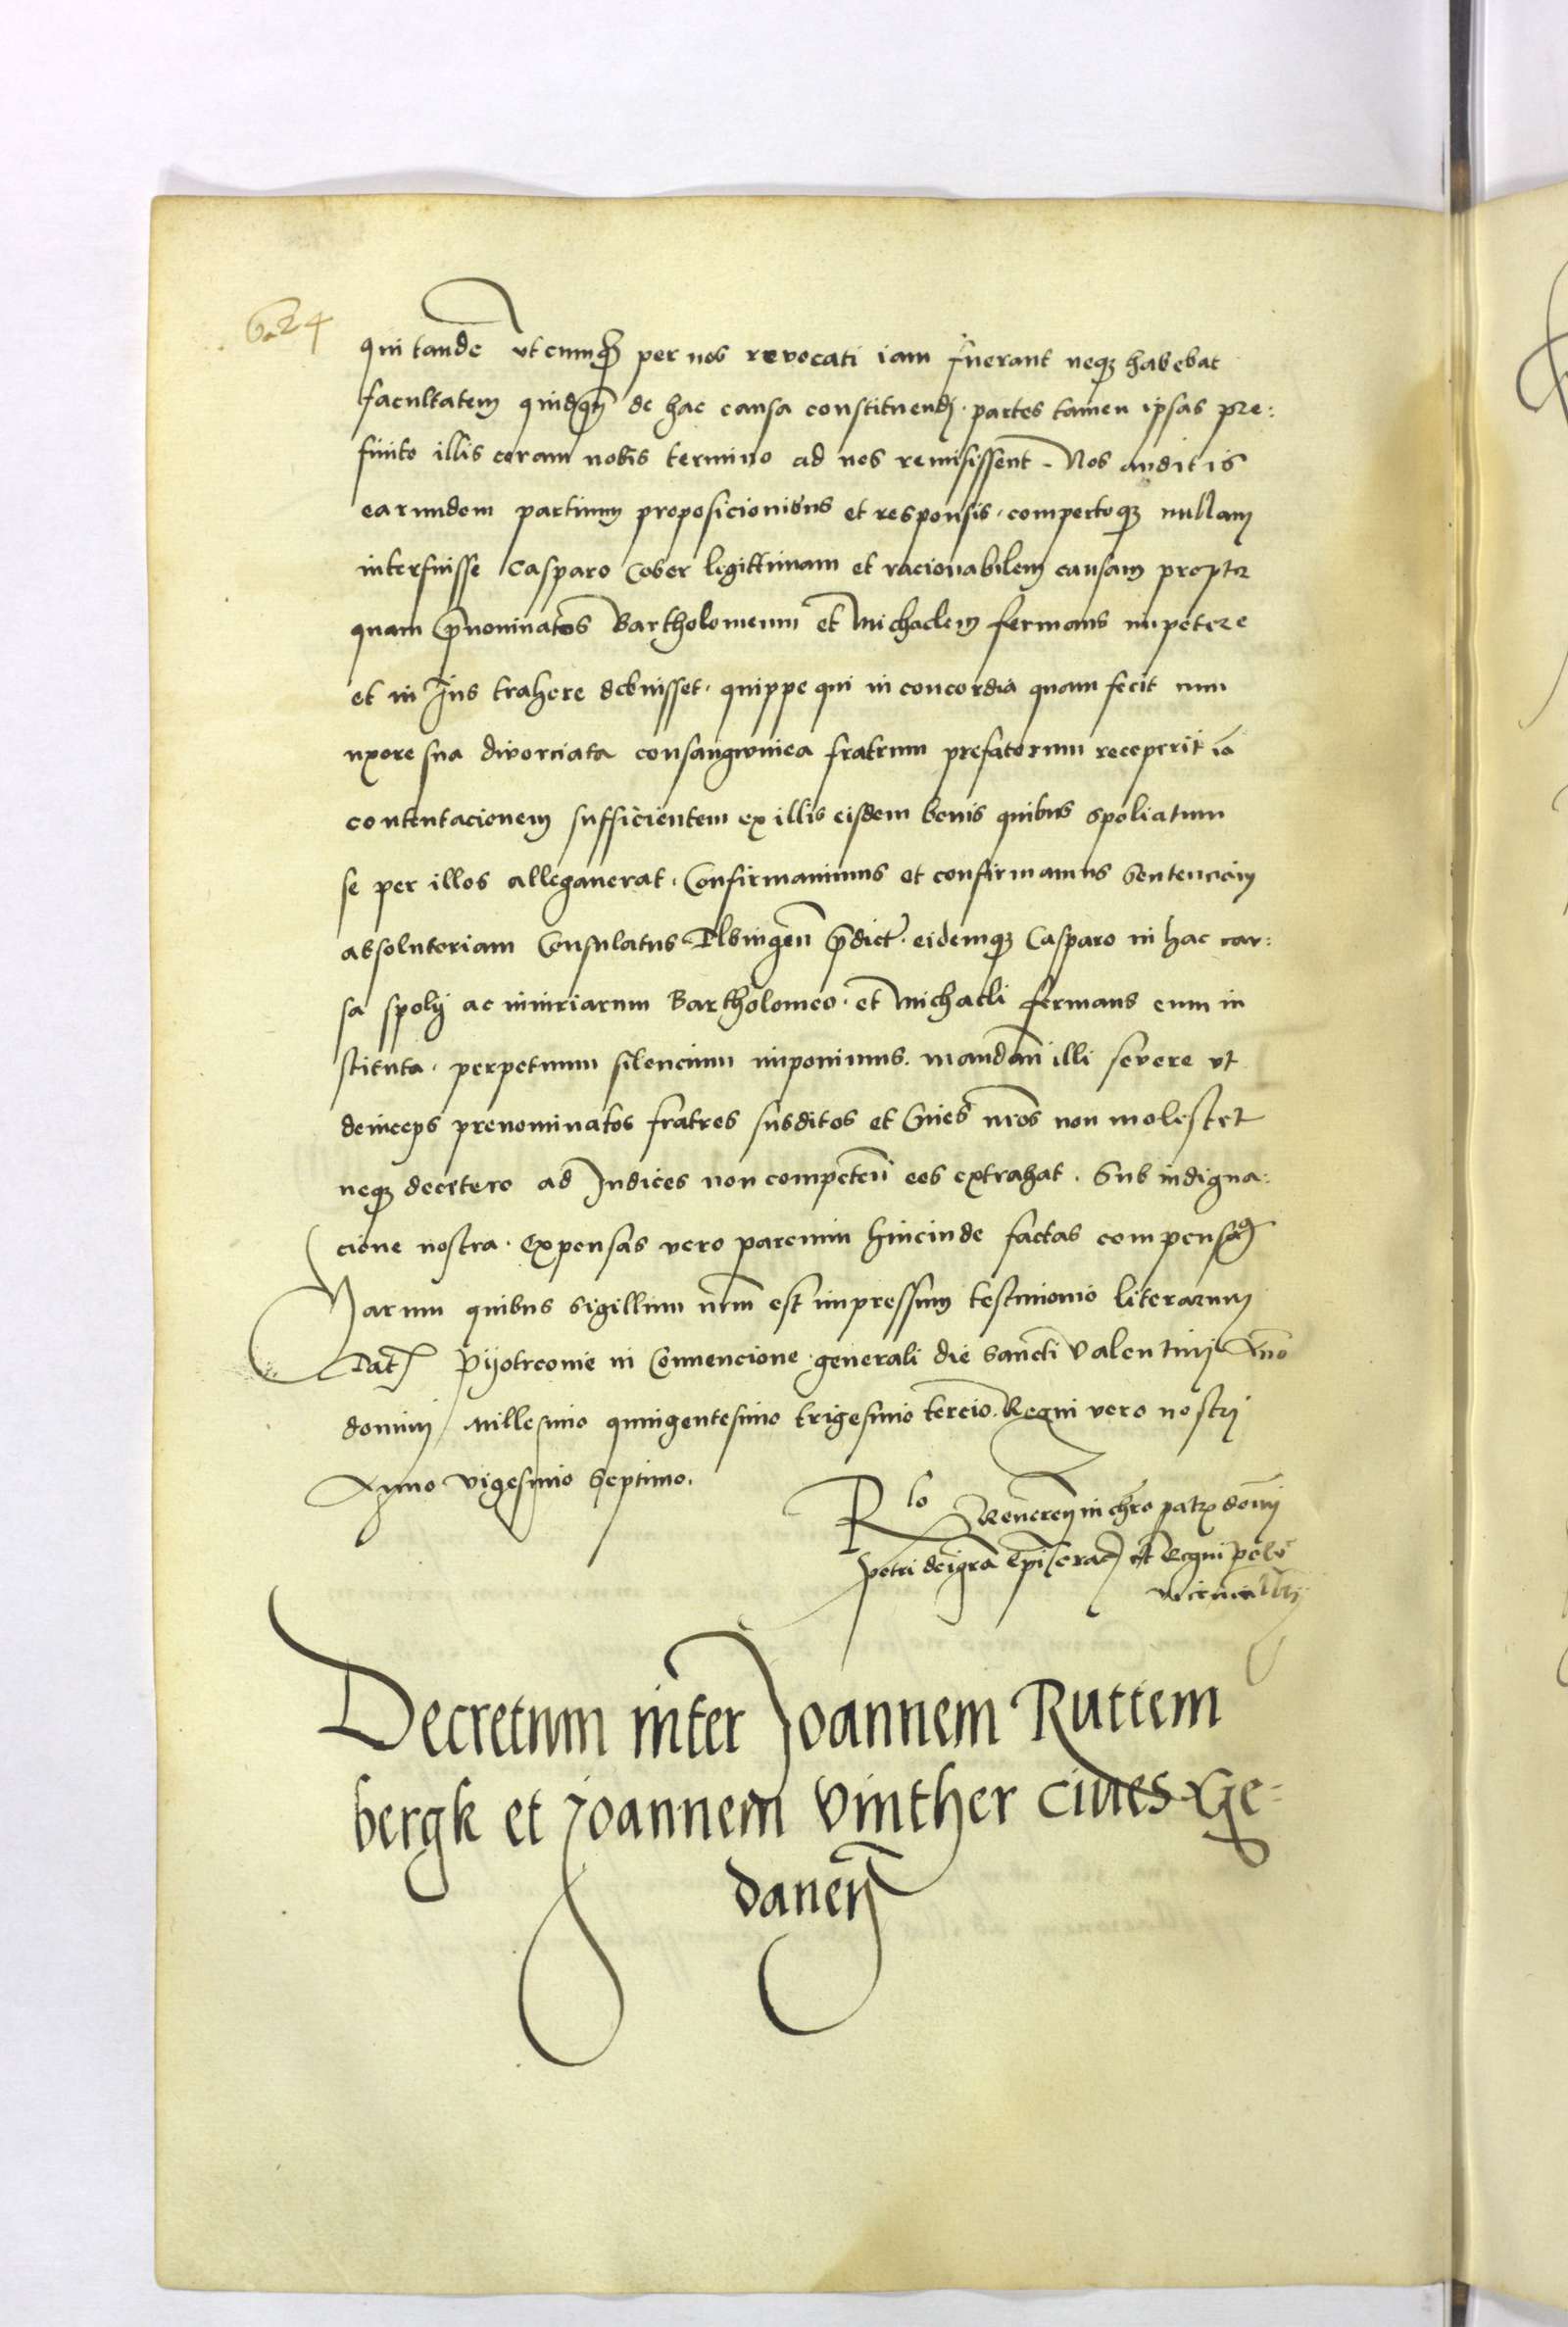 624
qui tandē utcumq̃ per nos revocati iam fuerant neq3 habebat
facultatem quidq̃ de hac causa constituendj. partes tamen ipsas pre:
finito illis coram nobis termino ad nos remisissent. Nos auditis
earundem partium proposicionibus et responsis. compertoq3 nullam
interfuisse Casparo Cober legittimam et racionabilem causam propter
quam p̃nominatos Bartholomeum et Michaelem fermans impetere
et in Jus trahere debuisset. quippe qui in concordia quam fecit cum
uxore sua divorciata consangwinea fratrum prefatorum receperit iā
contentacionem sufficientem ex illis eisdem bonis quibus spoliatum
se per illos allegauerat. Confirmauimus et confirmamus Sentenciam
absolutoriam Consulatus Elbingeñ p̃dict. eidemq3 Casparo in hac cau:
sa spolij ac iniuriarum Bartholomeo. et Michaeli fermans eum in
stituta. perpetuum silencium imponimus. mandañ illi severe ut
deinceps prenominatos fratres subditos et Ciues nr̃os non molestet
neq3 decetero ad Judices non competeñ eos extrahat. Sub indigna:
cione nostra. Expensas vero parcium hincinde factas compensa
Harum quibus Sigillum nr̃m est impressum testimonio literarum
Dat Pijotrcouie in Conuencione generali die Sancti Valentinj Anno
dominj Millesimo quingentesimo trigesimo tercio. Regni vero nostrj
Anno Vigesimo Septimo.
Rlo Reuereñ in chr̃o patr domĩ
Petri dei grã Epĩ Crac et Regni Polo
vicecancellarij
Decretum inter Joannem Ruttem
bergk et Joannem Vinther ciues Ge=
daneñ